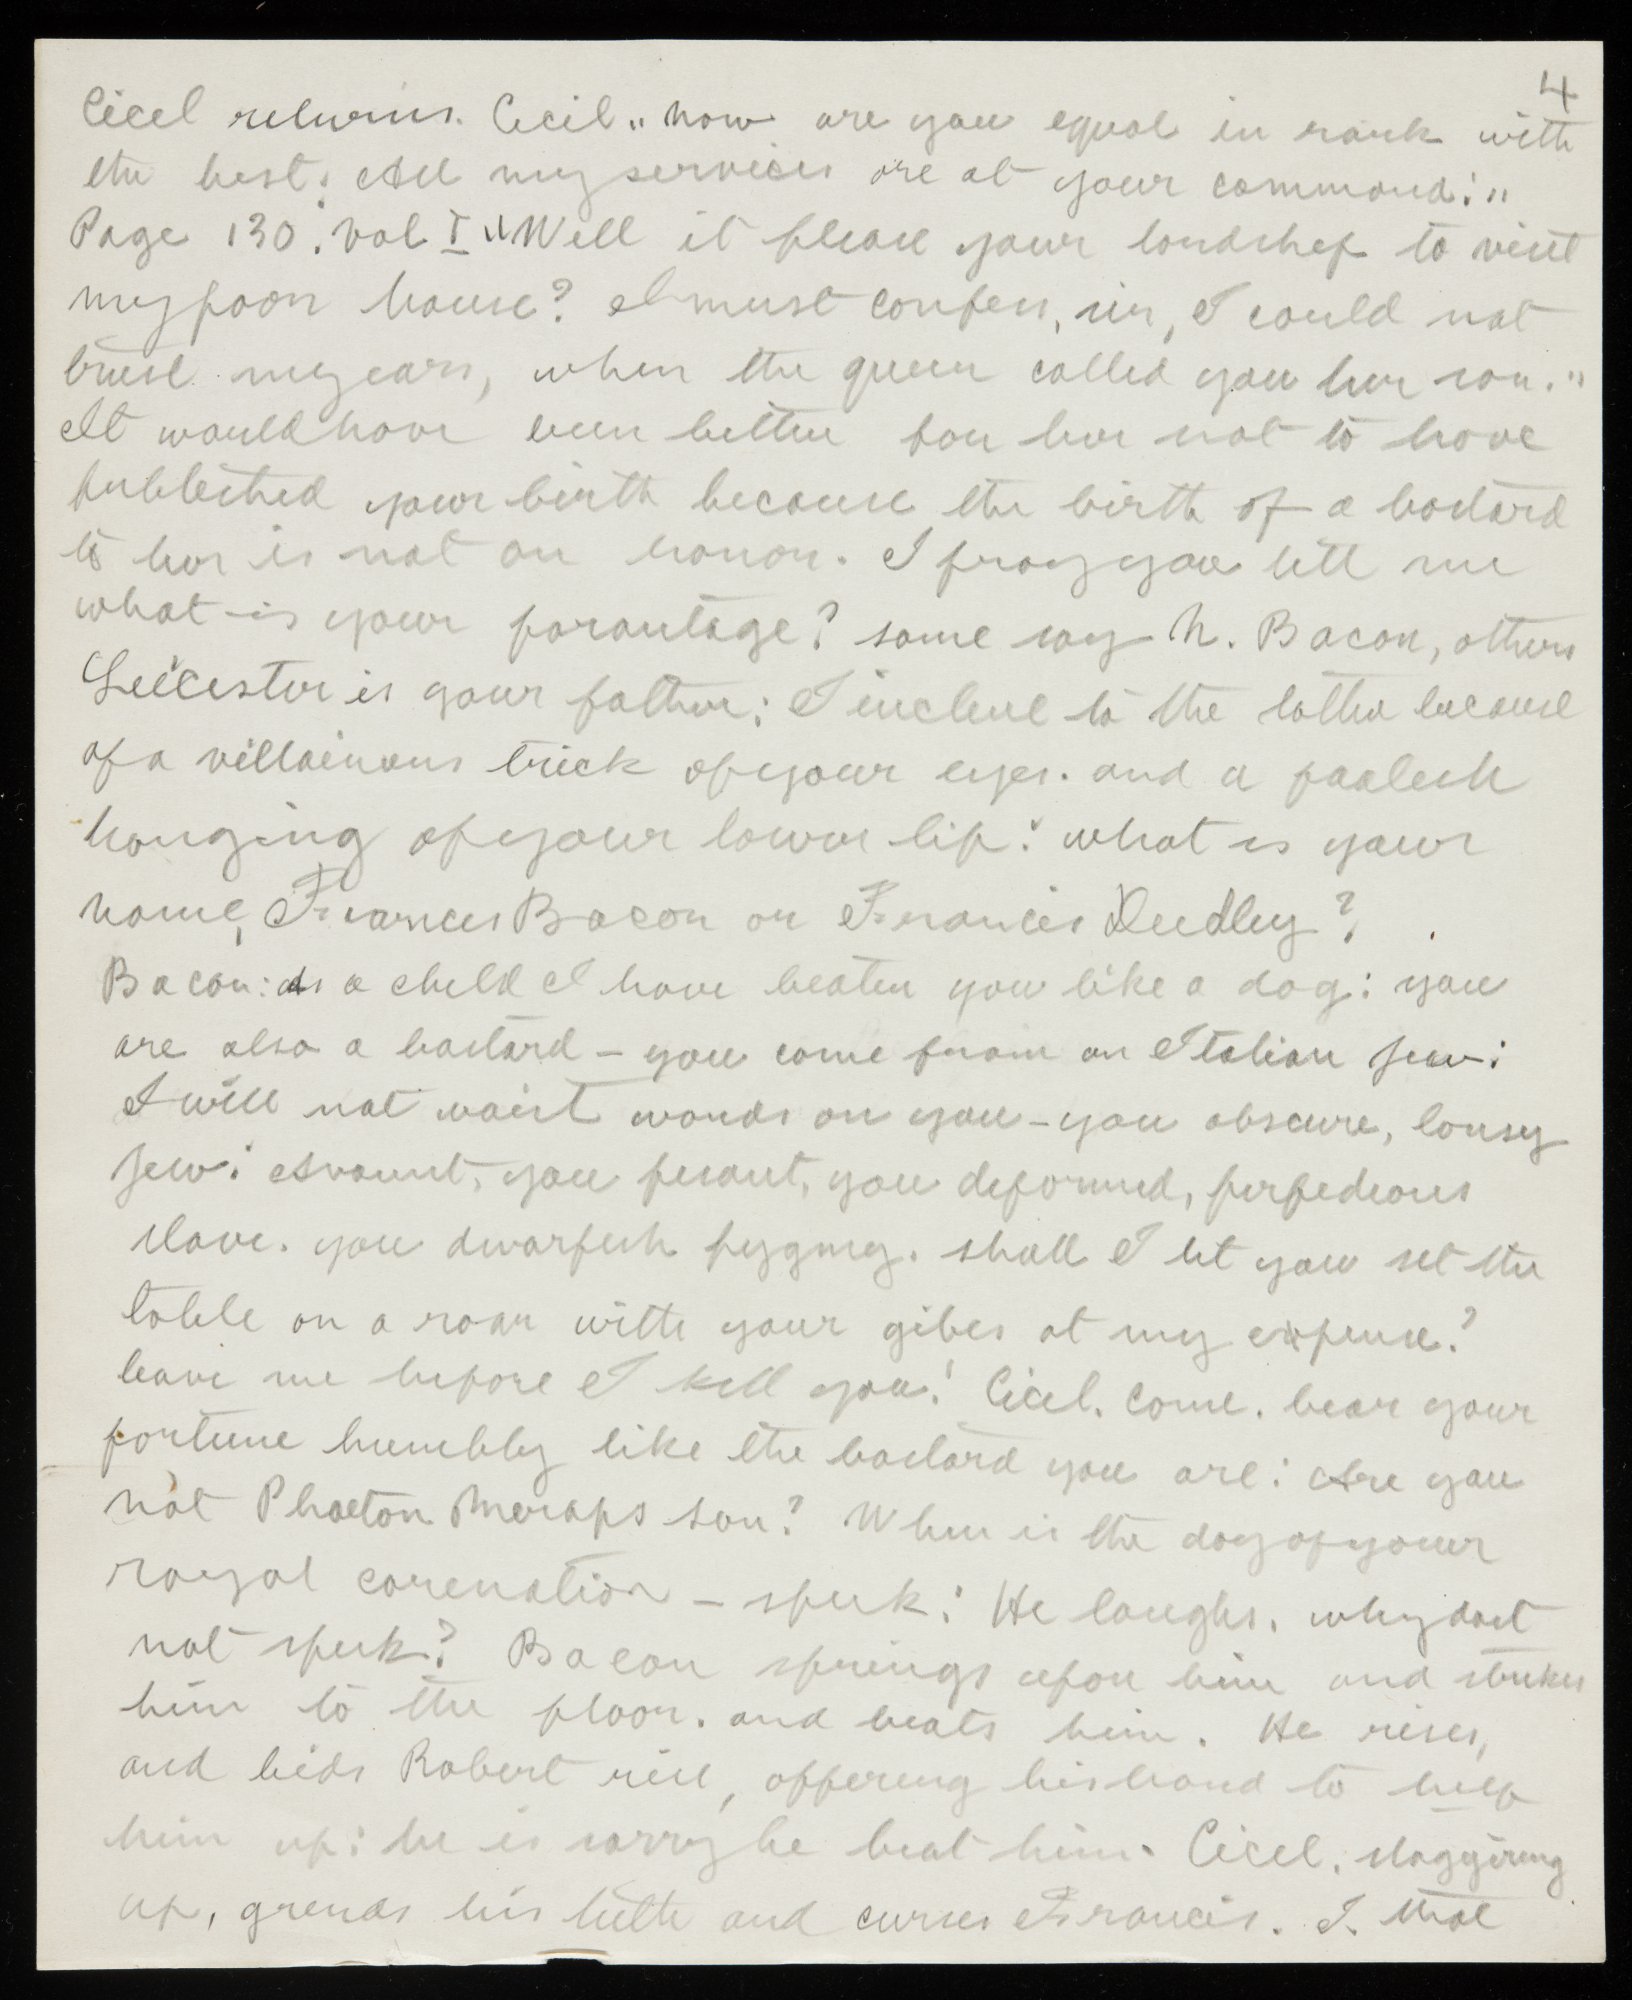 4
Cicel returns. Cecil "now are you equal in rank with
the best; All my services are at your command:"
Page 130. Vol I "Will it please your lordship to visit
my poor house? I must confess, sir, I could not
trust my ears, when the queen called you her son."
It would have been better for her not to have
published your birth because the birth of a bastard
to her is not an honor. I pray you tell me
what is your parantage? some say N. Bacon, others
Leicester is your father: I incline to the latter because
of a villainous trick of your eyes. and a foolish
hanging of your lower lip: what is your
name, Francis Bacon or Francis Dudley?
Bacon: As a child I have beaten you like a dog: you
are also a bastard - you come from an Italian Jew:
I will not waist words on you - you obscure, lousy
Jew: Avaunt, you pesant, you deformed, perfedious
slave. you dwarfish pygmy. shall I let you set the
table on a roar with your gibes at my expense?
leave me before I kill you! Cicel. Come. bear your
fortune humbly like the bastard you are: Are you
not Phaeton Meraps son? When is the day of your
royal corenation - speek: He laughs. why dost
not speek? Bacon springs upon him and strikes
him to the floor. and beats him. He rises,
and bids Robert rise, offering his hand to help
him up: he is sorry he beat him. Cicel, staggering
up, grends his teeth and curses Francis. I. that